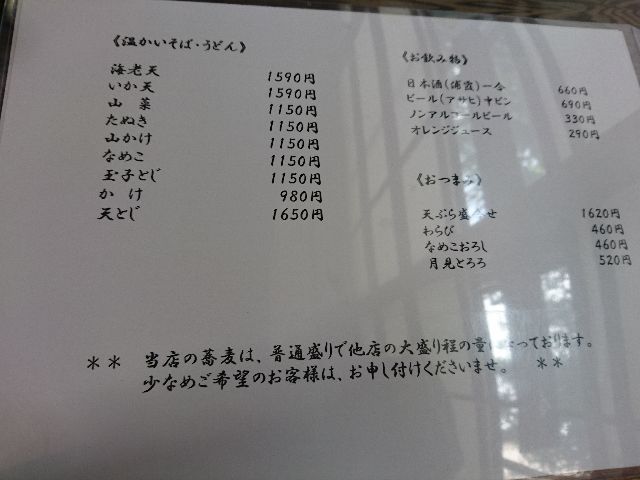 《温かいそば・うどん》
海老天 1590円
いか天 1590円
山菜 1150円
たぬき 1150円
山かけ 1150円
なめこ 1150円
玉子とじ 1150円
かけ 980円
天とじ 1650円
《お飲み物》
日本酒(浦霞)一合 660円
ビール(アサヒ)中ビン 690円
ノンアルコールビール 330円
オレンジジュース 290円
《おつまみ》
天ぷら盛合せ 1620円
わらび 460円
なめこおろし 460円
月見とろろ 520円
** 当店の蕎麦は、普通盛りで他店の大盛り程の量となっております。
少なめご希望のお客様は、お申し付けくださいませ。 **